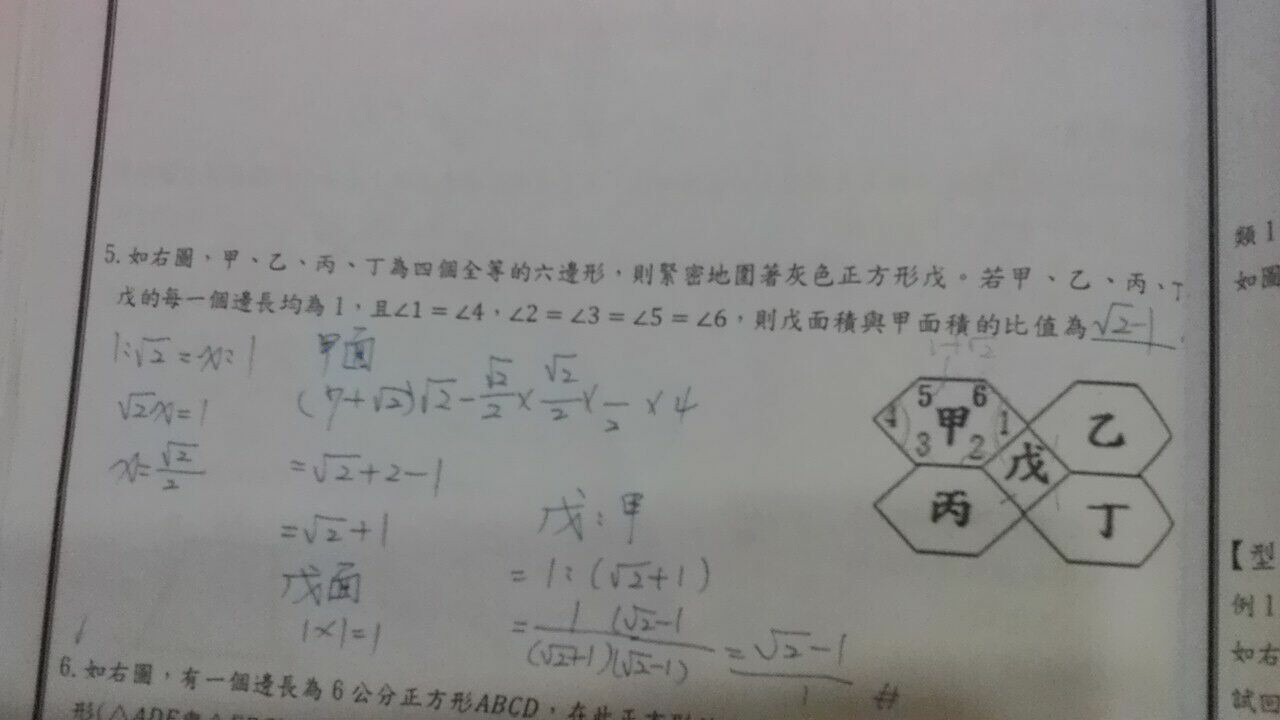 5.如右圖，甲、乙、丙、丁為四個全等的六邊形，則緊密地圍著灰色正方形戊。若甲、乙、丙、丁
戊的每一個邊長均為1，且∠1=∠4，∠2=∠3=∠5=∠6，則戊面積與甲面積的比值為√2-1
1:√2=x:1
√2x=1
x=√2/2
甲面
=√2+2-1
=√2+1
戊面
1×1=1
戊:甲
=1:(√2+1)
=1(√2-1/(√2+1)(√2-1)=√2-1/1 #
5 6
4 甲 1
3 2
乙
戊
丙
丁
6.如右圖，有一個邊長為6公分正方形ABCD，在此正方形
類1
如圖
【型
例1
如右
試回